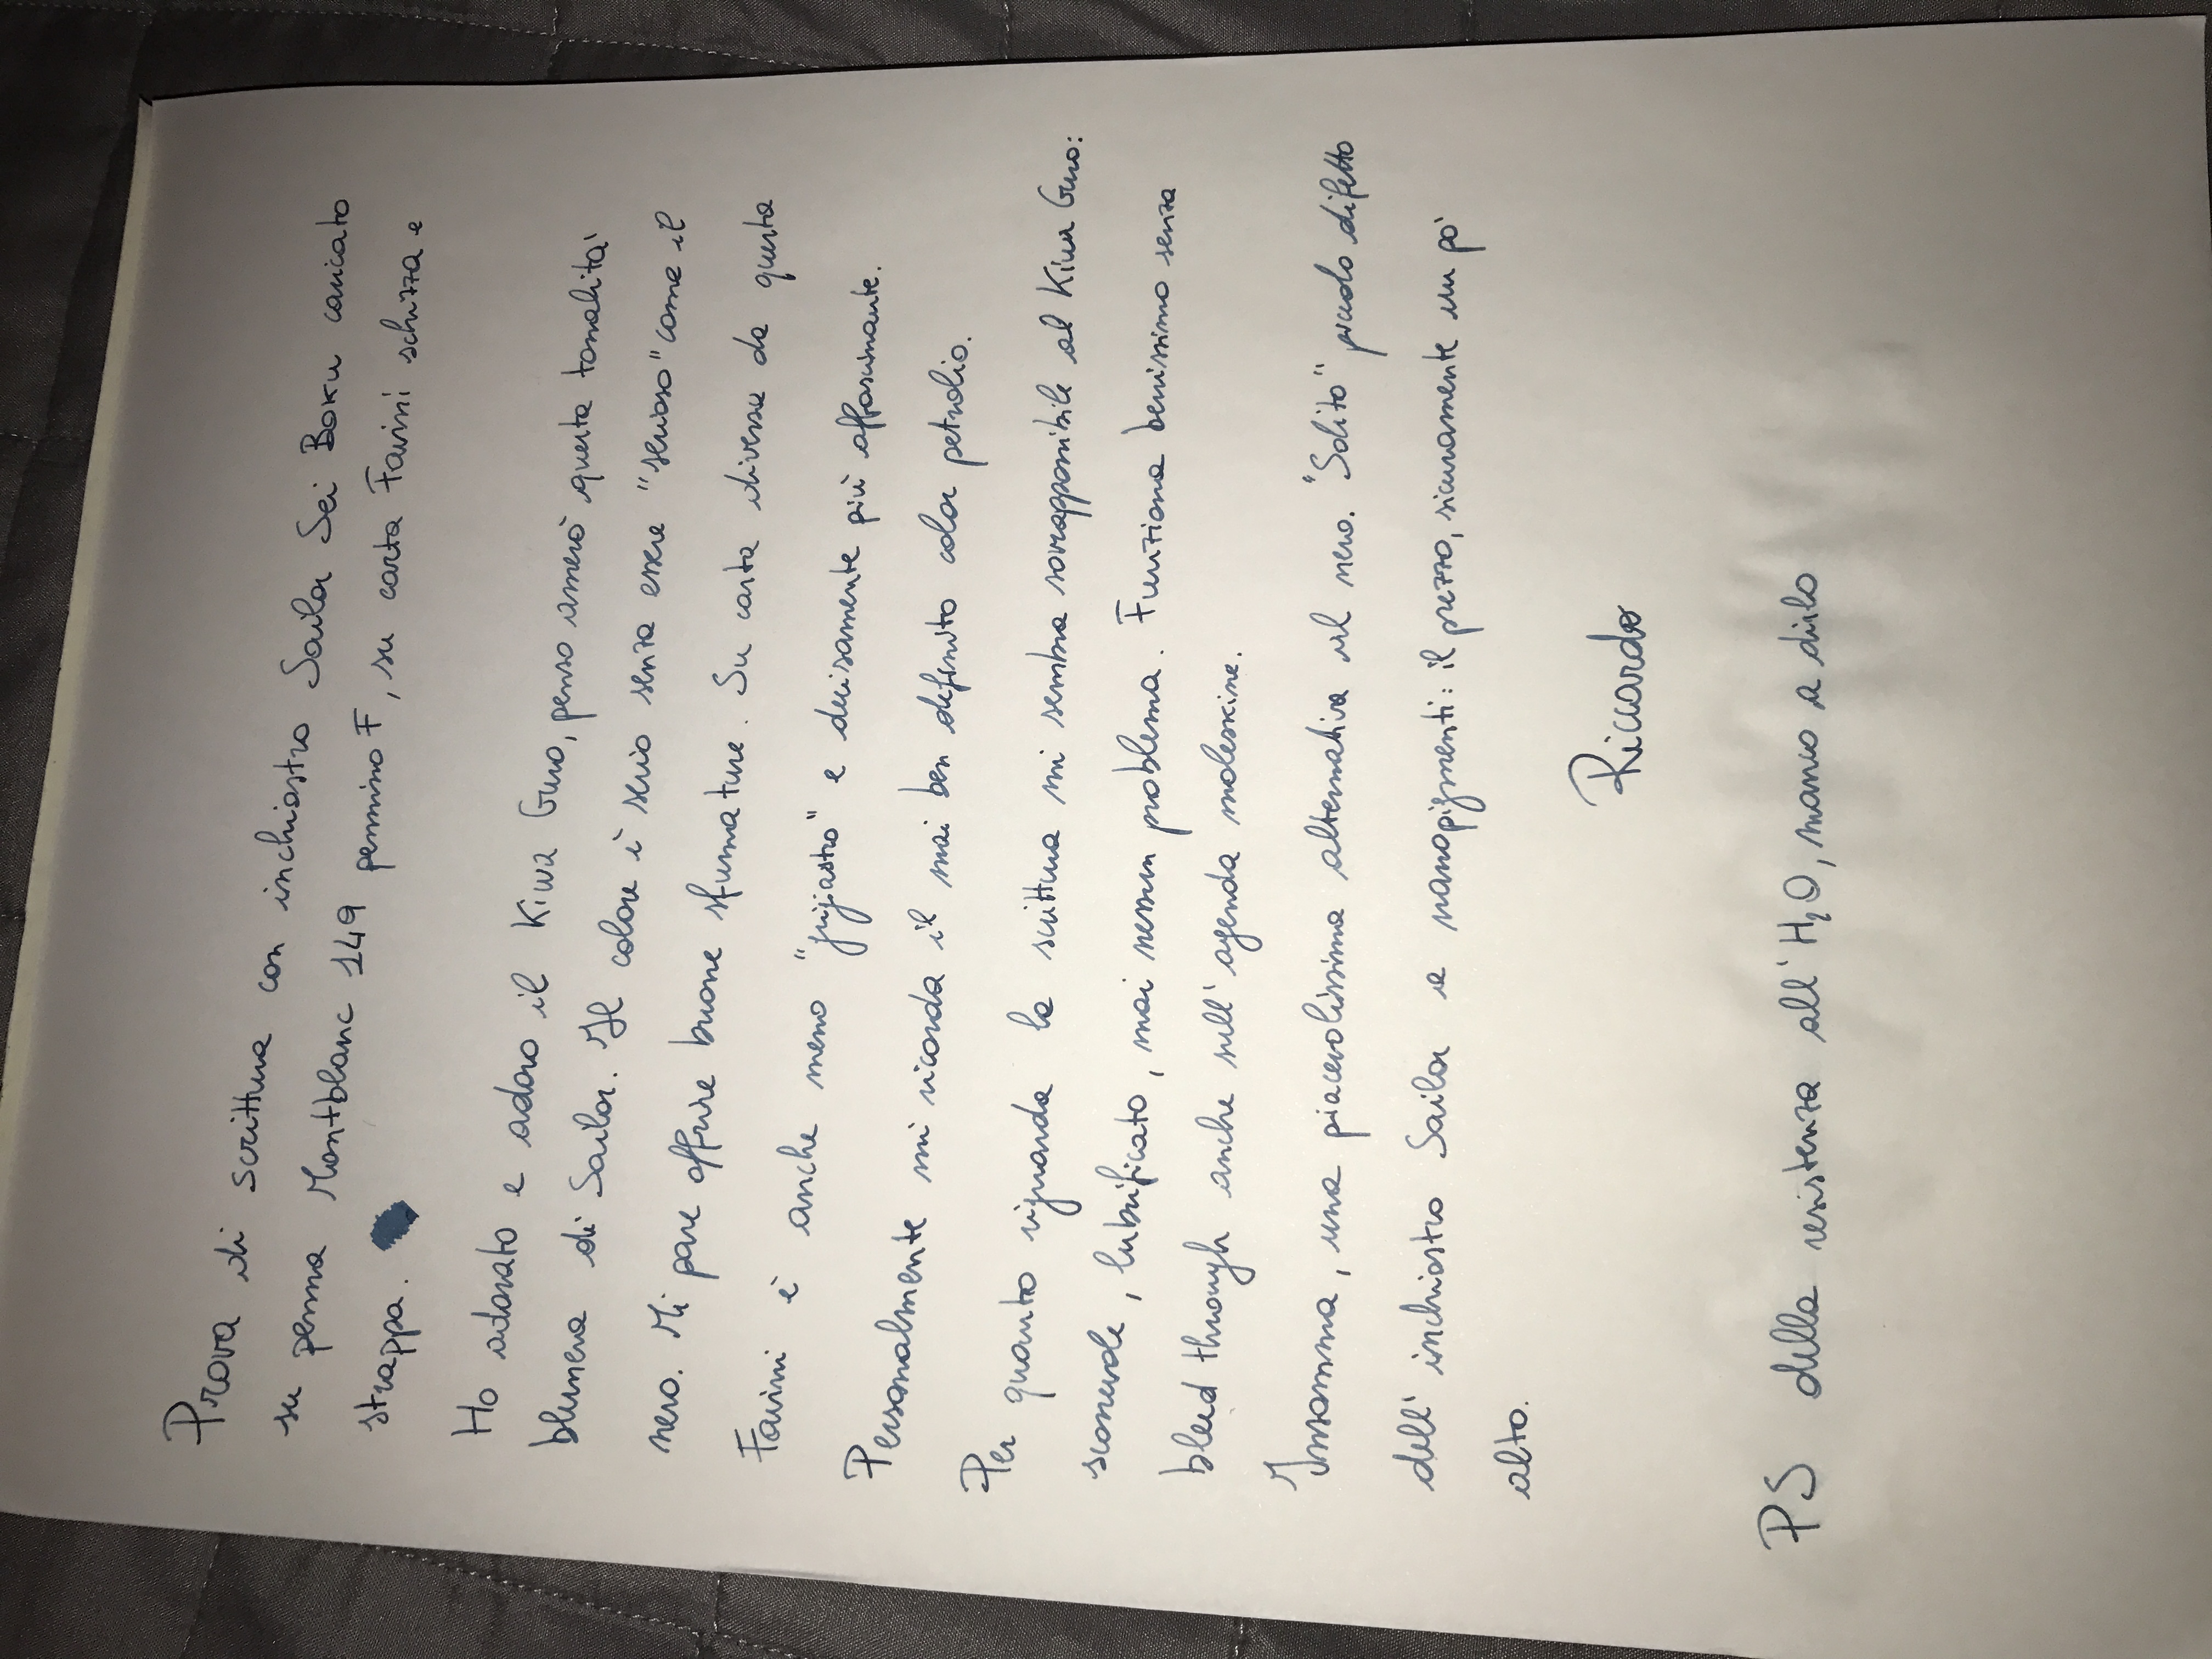 Prova di scrittura con inchiostro Sailor Sei Boku caricato
su penna Montblanc 149 pennino F, su carta Favini schizza e
strappa.
Ho adorato e adoro il Kiwa Guro, penso amerò questa tonalità
blunera di Sailor. Il colore è serio senza essere "serioso" come il
nero. Mi pare offrire buone sfumature. Su carta diversa da questa
Favini è anche meno "grigiastro" e decisamente più affascinante.
Personalmente mi ricorda il mai ben definito color petrolio.
Per quanto riguarda la scrittura mi sembra sovrapponibile al Kiwa Guro:
scorrevole, lubrificato, mai nessun problema. Funziona benissimo senza
bleed through anche sull'agenda moleskine.
Insomma, una piacevolissima alternativa al nero. "Solito" piccolo difetto
dell'inchiostro Sailor a nanopigmenti: il prezzo, sicuramente un pò
alto.
Riccardo
PS della resistenza all'H₂O, manco a dirlo